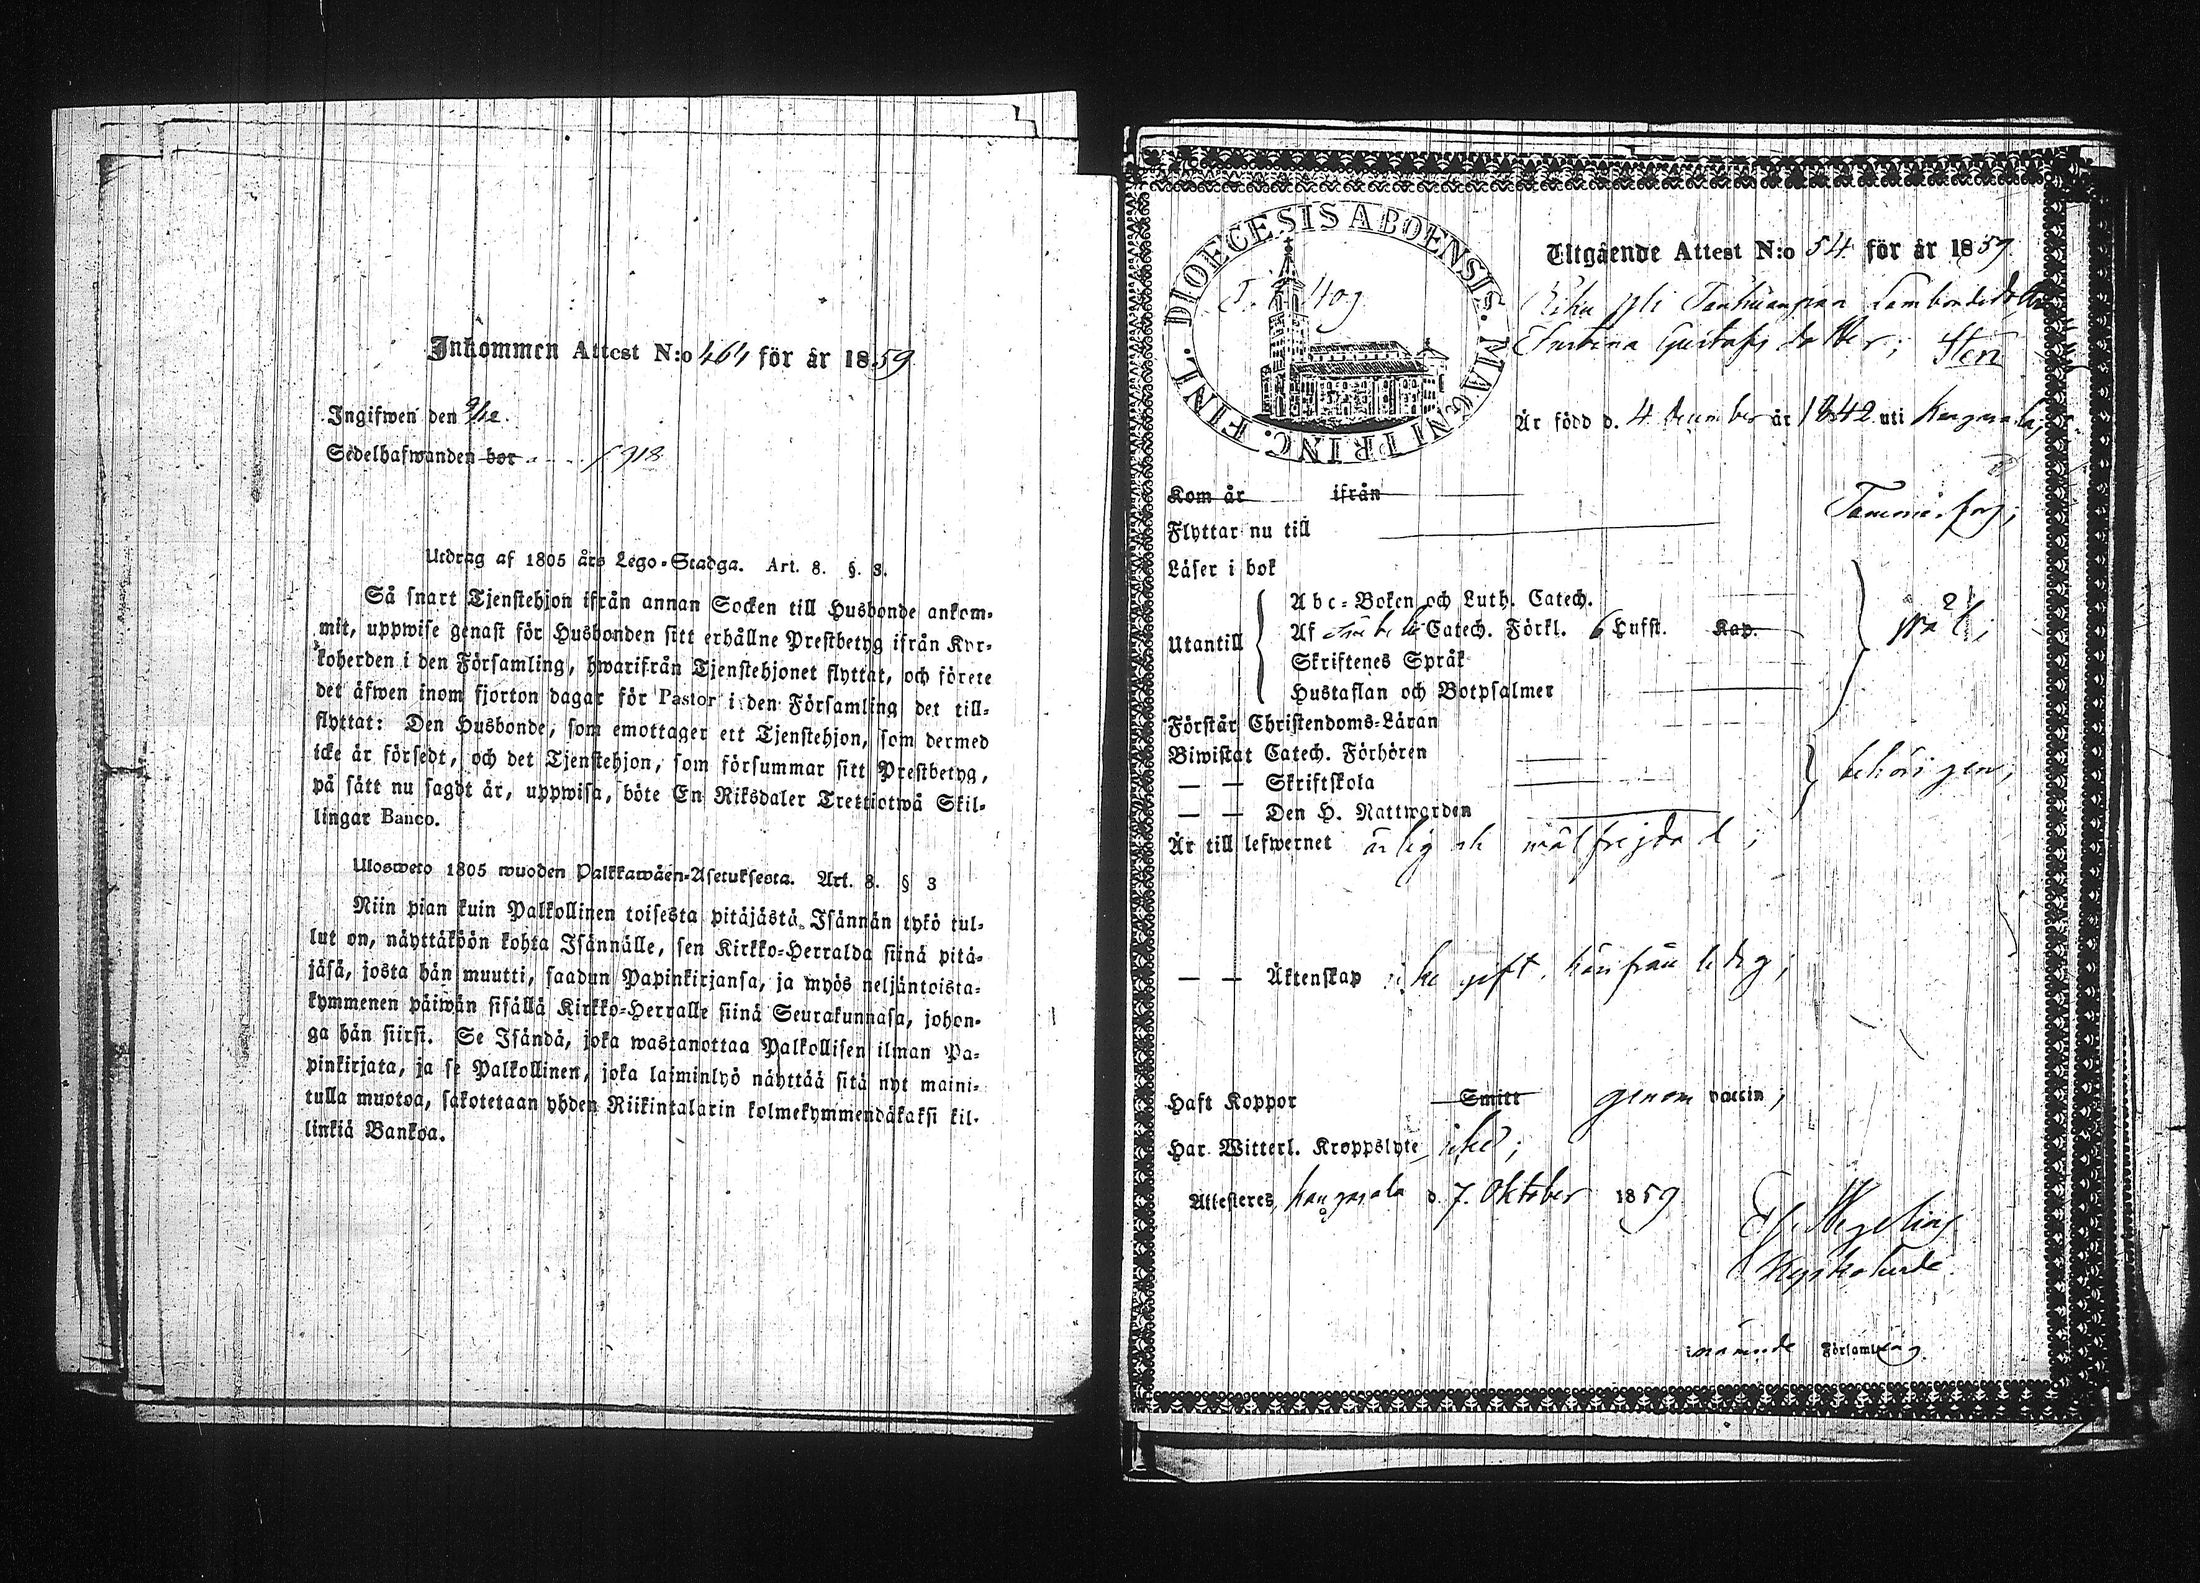 Inkommen Attest N:o 464 för år 1859
Ingifwen den 9/12.
Sedelhafwanden bor f 918
Utdrag af 1805 års Lego-Stadga. Art. 8. §. 3.
Så snart Tjenstehjon ifrån annan Socken till Husbonde ankom-
mit, uppwise genast för Husbonden sitt erhållne Prestbetyg ifrån Kyr-
koherden i den Församling, hwarifrån Tjenstehjonet flyttat, och förete
det äfwen inom fjorton dagar för Pastor i den Församling det till-
flyttat: Den Husbonde, som emottager ett Tjenstehjon, som dermed
icke är försedt, och det Tjenstehjon, som försummar sitt Prestbetyg,
på sätt nu sagdt är, uppwisa, böte En Riksdaler Trettiotwå Skil-
lingar Banco.
Ulosweto 1805 wuoden Palkkawäen-Asetuksesta. Art. 8. § 3
Niin pian kuin Palkollinen toisesta pitäjästä Isännän tykö tul-
lut on, näyttäköön kohta Isännälle, sen Kirkko-Herralda siinä pitä-
jäsä, josta hän muutti, saadun Papinkirjansa, ja myös neljäntoista-
kymmenen päiwän sisällä Kirkko-Herralle siinä Seurakunnasa, johon-
ga hän siirsi. Se Isändä, joka wastanottaa Palkollisen ilman Pa-
pinkirjata, ja se Palkollinen, joka laiminlyö näyttää sitä nyt maini-
tulla muotoa, sakotetaan yhden Riikintalarin kolmekymmendäkaksi kil-
linkiä Bankoa.
DIOECESIS ABOENSIS. MAGNI PRINC. FINL.
Utgående Attest N:o 54 för år 1859
Gustafs dotter; Sten
Är född d. 4 December år 1842 uti Kangasala,
Kom år ifrån
Flyttar nu till Tammerfors;
Läser i bok
Abc-Boken och Luth. Catech.
Utantill Af Catech. Förkl. 6 Hufst. Kap.
Skriftenes Språk
Hustaflan och Botpsalmer
Förstår Christendoms-Läran
Biwistat Catech. Förhören
— — Skriftskola behörigen;
— — Den H. Nattwarden
Är till lefwernet ärlig och wälfrejdad;
— — Äktenskap icke gift, härifrån ledig;
Haft Koppor Smitt genom vaccin;
Har Witterl. Kroppslyte icke;
Attesteres, Kangasala d. 7. Oktober 1859
Kyrkoherde
Församling